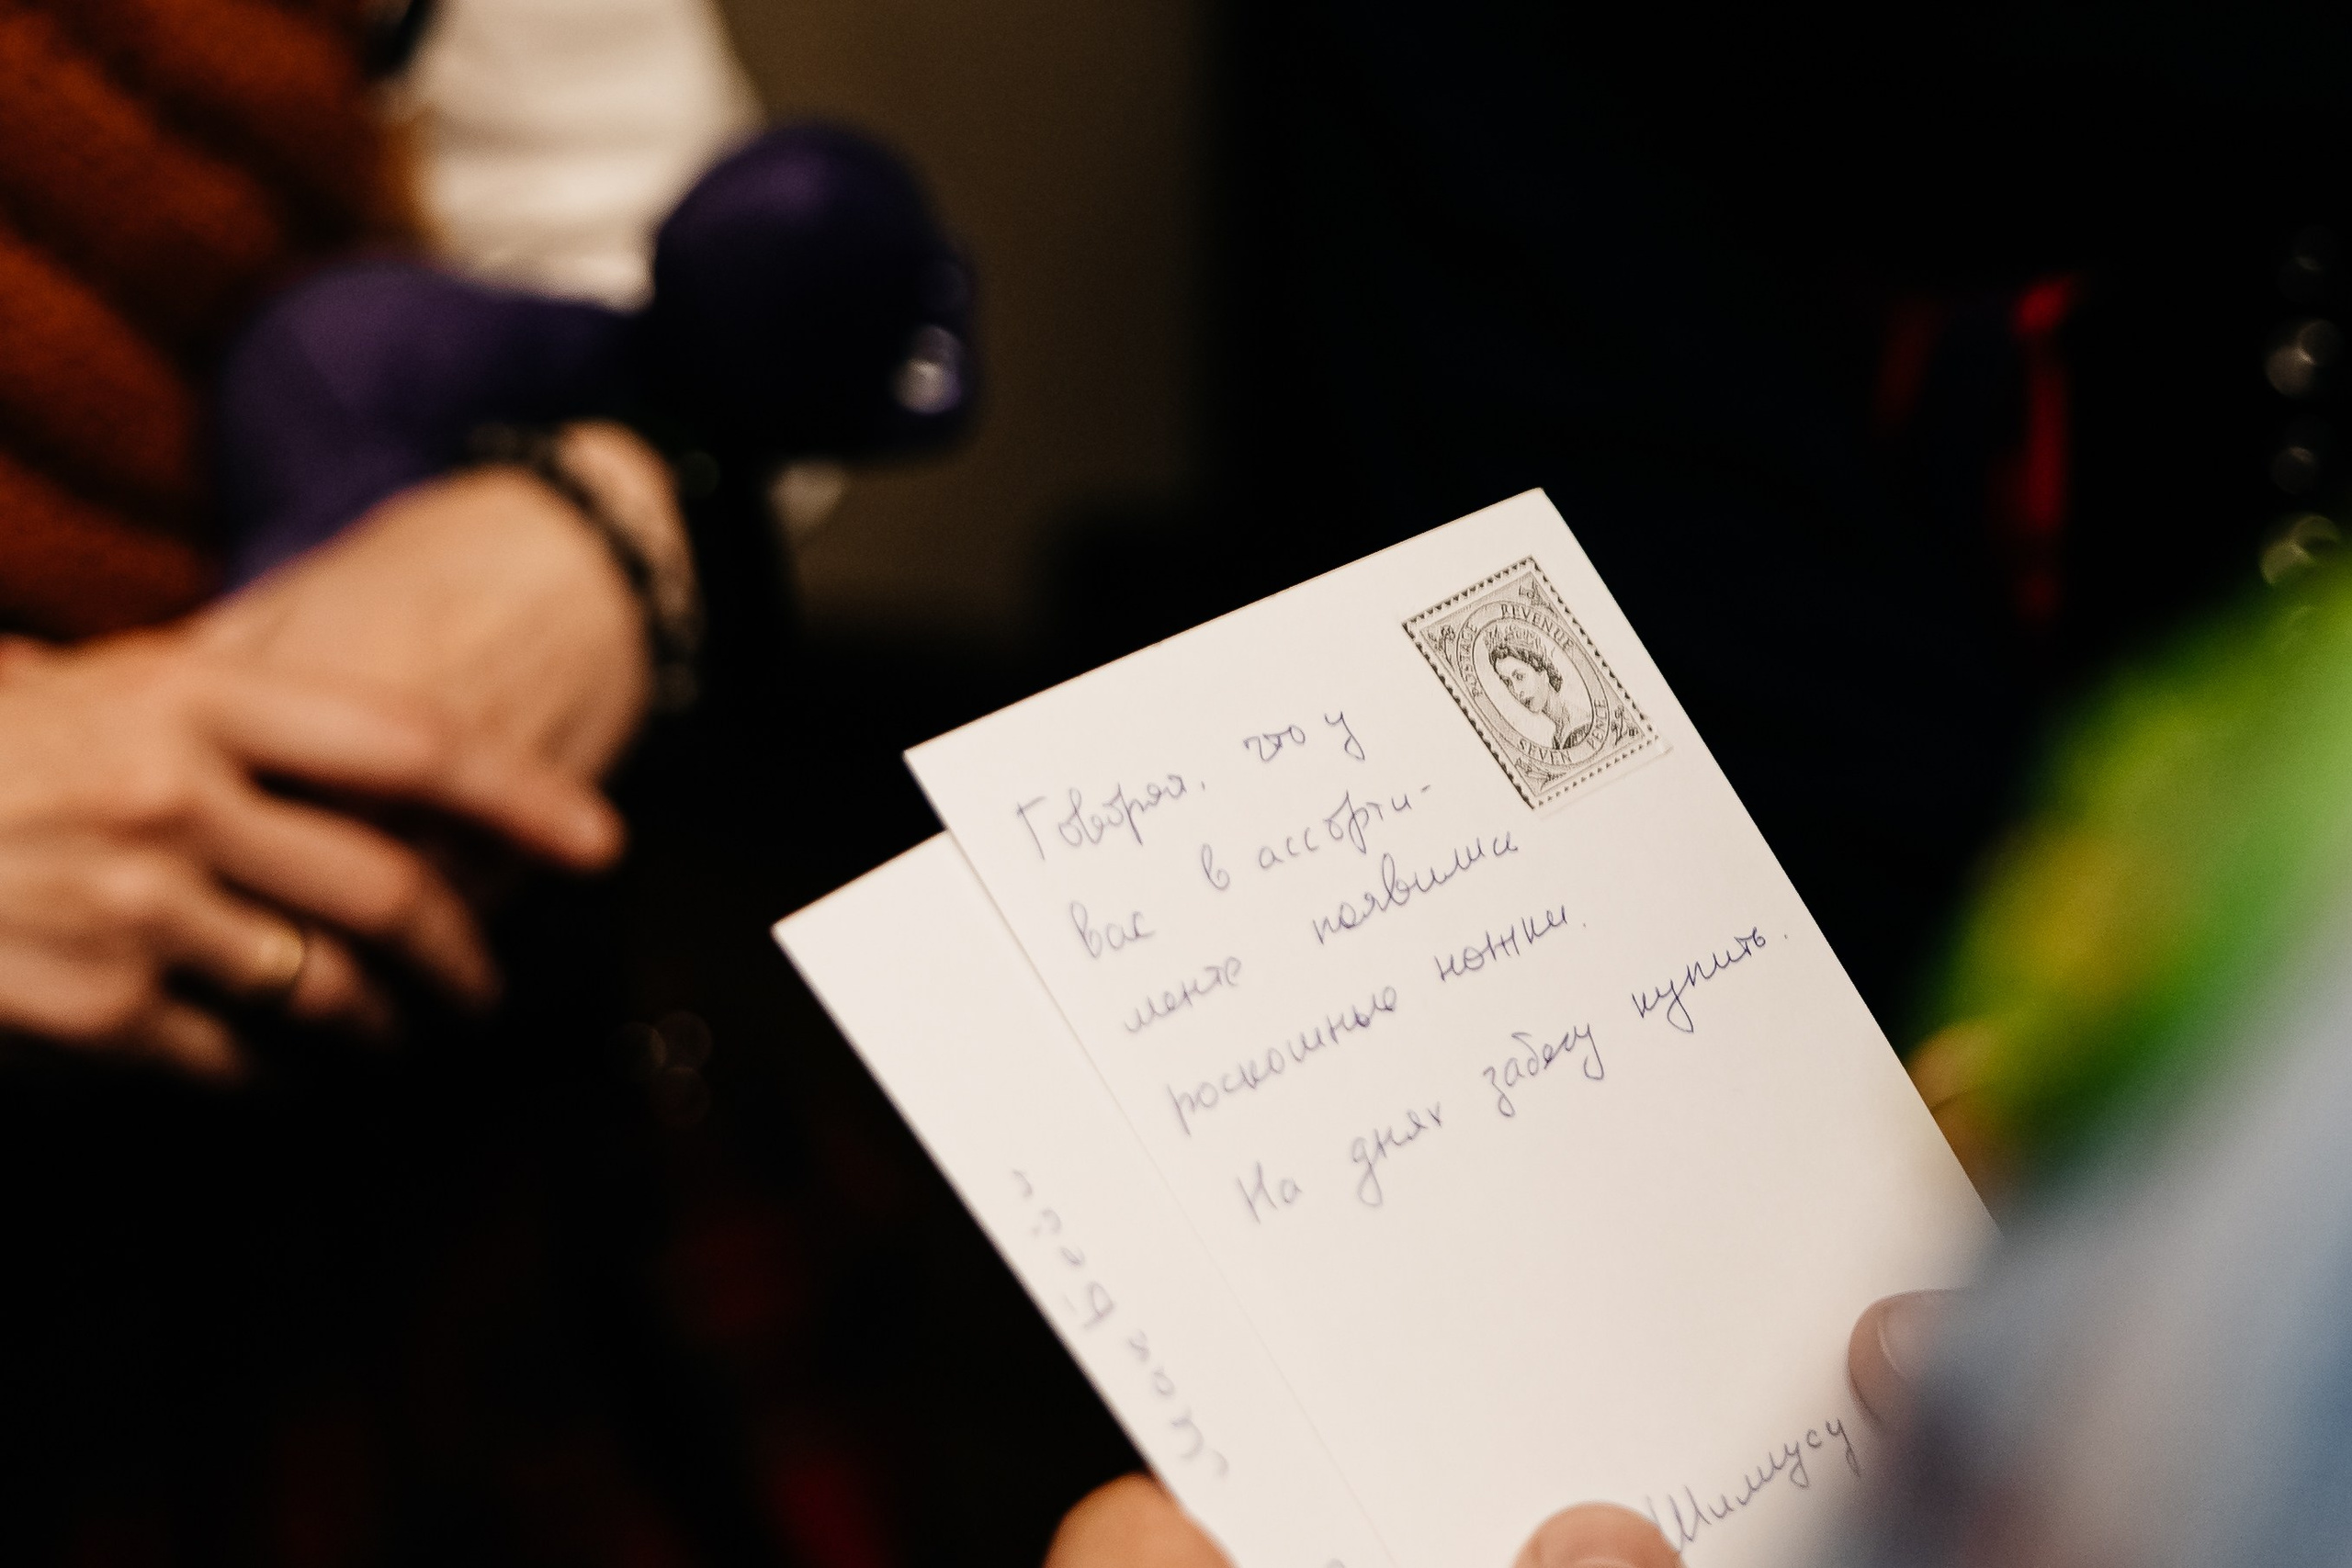 POSTAGE REVENUE
SEVEN PENCE
Говорят, что у
вас в ассорти-
менте появились
роскошные ножки.
На днях забегу купить.
Шимусу